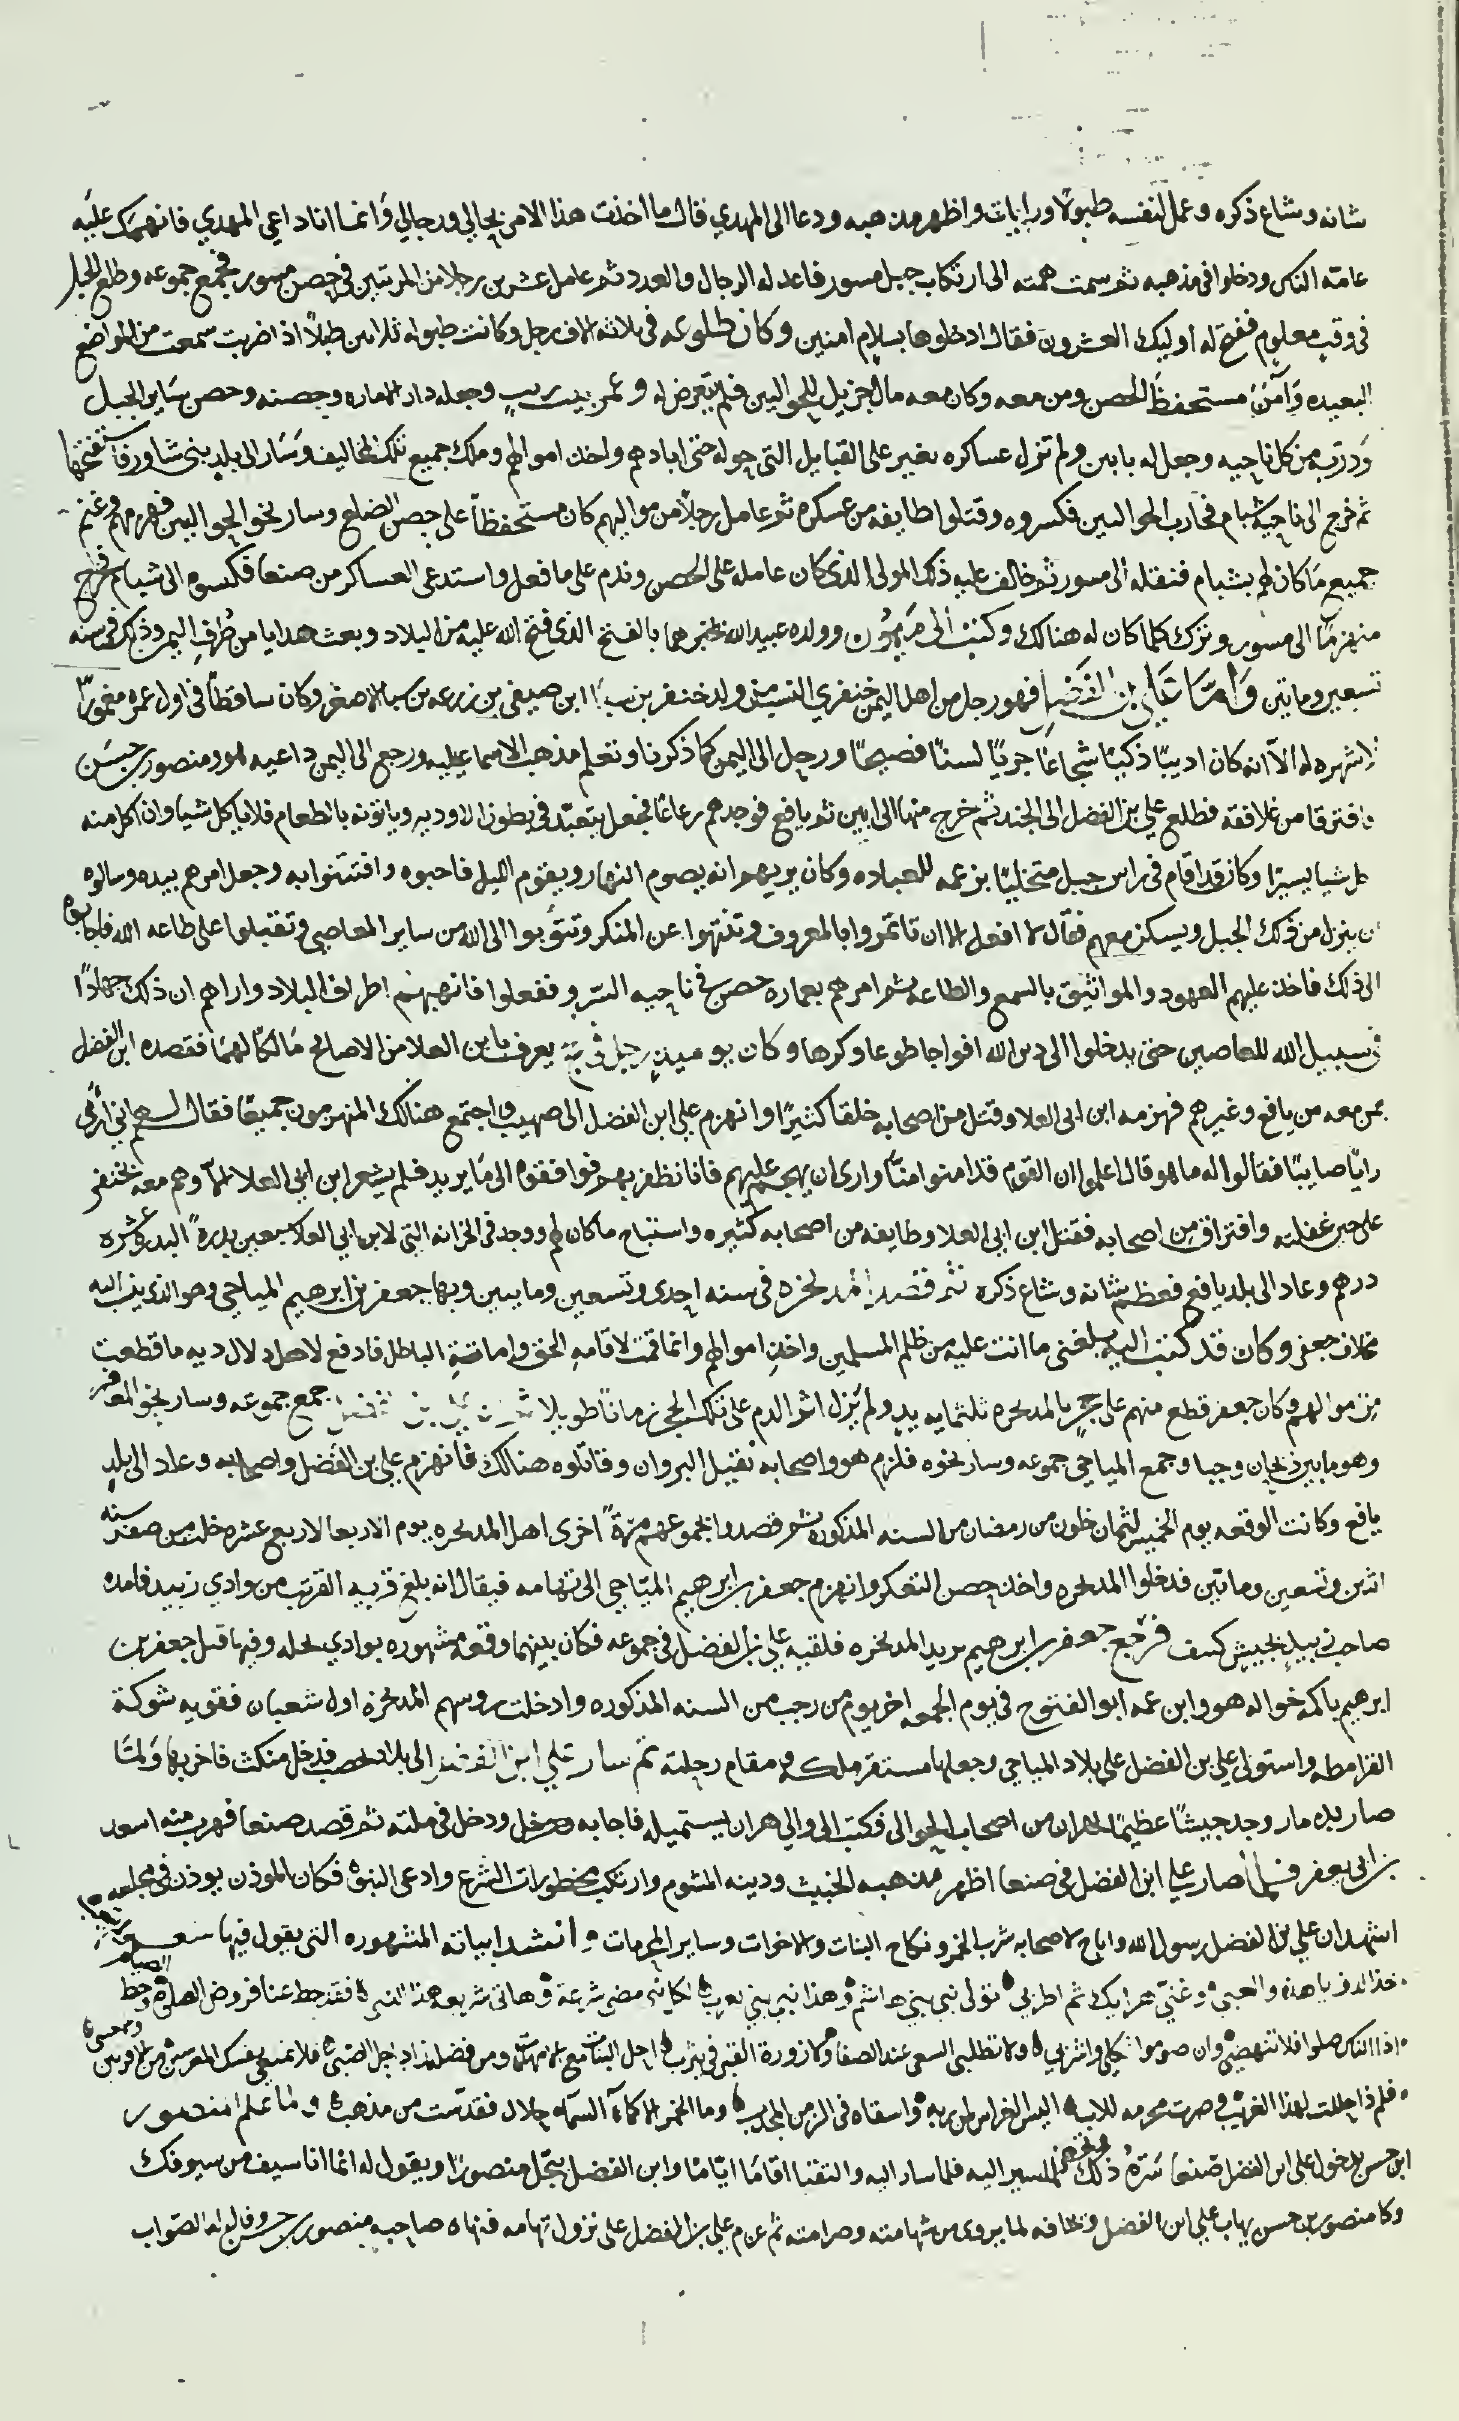 شانه وشاع ذكره وعمل لنفسه طبولا ورايات واظهر مذهبه ودعا الى المهدي فقال ما اخذت هذا الامر بحالي ورجالي وانما انا داعي المهدي فانهمك عليه
عامة الناس ودخلوا في مذهبه ثم سمت همته الى ارتكاب جبل مسور فاعد له الرجال والعدد ثم عامل عشرين رجلا من المرتبين في حصن مسور فجمع جموعه وطلع الجبل
في وقت معلوم ففتح له اوليك العشرون فقال ادخلوها بسلام امنين وكان طلوعه في ثلاثة الاف رجل وكانت طبوله ثلاثين طبلا اذا ضربت سمعت من المواضع
البعيده وآمن مستحفظ الحصن ومن معه وكان معه مال جزيل للحواليين فلم يتعرض له وعمر بيت ريب وجعله دار الاماره وحصنه وحصن ساير الجبل
ودربه من كل ناحيه وجعل له بابين ولم تزل عساكره تغير على القبايل التي حوله حتى ابادهم واخذ اموالهم وملك جميع تلك المخاليف وسار الى بلد بني شاور فاستفتحها
ثم خرج الى ناحية شبام فحارب الحواليين فكسروه وقتلوا طايفه من عسكره ثم عامل رجلا من مواليهم كان مستحفظا على حصن الضلع وسار نحو الحواليين فهزمهم وغنم
جميع ما كان لهم بشبام فنقله الى مسور ثم خالف عليه ذلك المولى الذي كان عامله على الحصن وندم على ما فعل واستدعى العساكر من صنعا فكسوه الى شبام فخرج
منهزما الى مسور وترك كلما كان له هنالك وكتب الى ميمون وولده عبيد الله يخبرهما بالفتح الذي فتح الله عليه من البلاد وبعث هدايا من طرف اليمن وذلك في سنه
تسعين وماتين واما علي بن الفضل فهو رجل من اهل اليمن خنفري النسب من ولد خنفر بن سبا ابن صيفي بن زرعه بن سبا الاصغر وكان ساقطا في اول عمره مغمورا
لا شهره له الا انه كان اديبا ذكيا شجاعا جريا لسنا فصيحا ورحل الى اليمن كما ذكرنا وتعلم مذهب الاسماعيليه ورجع الى اليمن داعيه هو ومنصور بن حسن
وافترقا من غلافقه فطلع علي بن الفضل الى الجند ثم خرج منها الى ابين ثم يافع فوجدهم رعاعا فجعل يتعبد في بطون الاوديه وياتونه بالطعام فلا ياكل شيا وان اكل منه
اكل شيا يسيرا وكان قد اقام في راس جبل متخليا بزعمه للعباده وكان يريهم انه يصوم النهار ويقوم الليل فاحبوه وافتتنوا به وجعلوا امرهم بيده وسالوه
ان ينزل من ذلك الجبل ويسكن معهم فقال لا افعل الا ان تاتمروا بالمعروف وتنتهوا عن المنكر وتتوبوا الى الله من ساير المعاصي وتقبلوا على طاعه الله فاجابوه
الى ذلك فاخذ عليهم العهود والمواثيق بالسمع والطاعه ثم امرهم بعماره حصن في ناحيه السرو ففعلوا فانهبهم اطراف البلاد واراهم ان ذلك جهادا
في سبيل الله للعاصين حتى يدخلوا الى دين الله افواجا طوعا وكرها وكان يوميذ رجل يعرف بابن العلا من الاصابح مالكا لهما فقصده ابن الفضل
بمن معه من يافع وغيرهم فهزمه ابن ابي العلا وقتل من اصحابه خلقا كثيرا وانهزم علي ابن الفضل الى صهيب واجتمع هنالك المنهزمون جميعا فقال لهم اني ارى
رايا صايبا فقالوا له ما هو قال اعلموا ان القوم قد امنوا منا وارى ان نهجم عليهم فانا نظفر بهم فوافقوه الى ما يريد فلم يشعر ابن ابي العلا الا وهم معه بخنفر
على حين غفلة وافتراق من اصحابه فقتل ابن ابي العلا وطايفه من اصحابه كثيره واستباح ما كان لهم ووجد في الخزانه التي لابن ابي العلا سبعين بدرة البدره عشره
درهم وعاد الى بلد يافع فعظم شانه وشاع ذكره ثم قصد المذيخره في سنه احدى وتسعين ومايتين وبها جعفر بن ابرهيم المياحي وهو الذي ينسب اليه
مخلاف جعفر وكان قد كتب اليه بلغني ما انت عليه من ظلم المسلمين واخذ اموالهم وانما قمت لاقامه الحق واماتة الباطل فادفع لاهل دلال ديه ما قطعت
من اموالهم وكان جعفر قطع منهم على حجر بالمذيخره ثلثمايه يد ولم يزل اثر الدم على تلك الحجر زمانا طويلا ثم ان علي بن الفضل جمع جموعه وسار نحو المعافر
وهو ما بين ذبحان وجبا وجمع المياحي جموعه وسار نحوه فلزم هو واصحابه نقيل البروان وقاتلوه هنالك فانهزم علي بن الفضل واصحابه وعاد الى بلد
يافع وكانت الوقعه يوم الخميس لثمان خلون من رمضان من السنه المذكوره ثم قصد وا بجموعهم مرة اخرى اهل المذيخره يوم الاربعا لاربع عشره خلت من صفر سنه
اثنين وتسعين وماتين فدخلوا المذيخره واخذ حصن التعكر وانهزم جعفر بن ابرهيم المياحي الى تهامه فيقال انه بلغ قريه القرتب من وادي زبيد فامده
صاحب زبيد بجيش كثيف فرجع جعفر بن ابرهيم يريد المذيخره فلقيه علي بن الفضل في جموعه فكان بينهما وقعه مشهوره بوادي نخله وفيها قتل جعفر بن
ابرهيم باكمة خواله هو وابن عمه ابو الفتوح في يوم الجمعه اخر يوم من رجب من السنه المذكوره وادخلت روسهم المذيخره اول شعبان فقويه شوكة
القرامطه واستولى علي بن الفضل على بلاد المياحي وجعلها مستقر ملكه ومقام رحلته ثم سار علي ابن الفضل الى بلاد يحصب فدخل منكث فاخربها ولما
صار بذمار وجد جيشا عظيما بهران من اصحاب الحوالي فكتب الى والي هران يستميله فاجابه ودخل في ملته ثم قصد صنعا فهرب منه اسعد
بن ابي يعفر فلما صار علي ابن الفضل في صنعا اظهر مذهبه الخبيث ودينه المشوم وارتكب محظورات الشرع وادعى النبوة فكان الموذن يوذن في مجلسه
اشهد ان علي بن الفضل رسول الله واباح لاصحابه شرب الخمر ونكاح البنات والاخوات وساير المحرمات وانشد ابياته المشهوره التي يقول فيها شعر
خذي الدف يا هذه والعبي وغني هزاريك ثم اطربي تولى نبي بني هاشم وهذا نبي بني يعرب لكل نبي مضى شرعة وهاتي شريعه هذا النبي فقد حط عنا فروض الصلوة وحط الصيام
اذا الناس صلوا فلا تنهضي وان صوموا فكلي واشربي ولا تطلبي السعي عند الصفا ولا زورة القبر في يثرب احل البنات مع الامهات ومن فضله زاد حل الصبي فلا تمنعي نفسك المعرسين من الاقربين
فلم ذا حللت لهذا الغريب وصرت محرمه للاب اليس الغراس لمن ربه واسقاه في الزمن المجدب وما الخمر الا كماء السماء حلال فقدست من مذهب ولما علم منصور
ابن حسن بدخول علي ابن الفضل صنعا سره ذلك وتجهز للمسير اليه فلما سار اليه والتقيا اقاما اياما وابن الفضل يبجل منصورا ويقول له انما انا سيف من سيوفك
وكان منصور بن حسن يهاب علي ابن الفضل ويخافه لما يروى من شهامته وصرامته ثم عزم علي بن الفضل على نزول تهامه فنهاه صاحبه منصور بن حسن وقال له الصواب